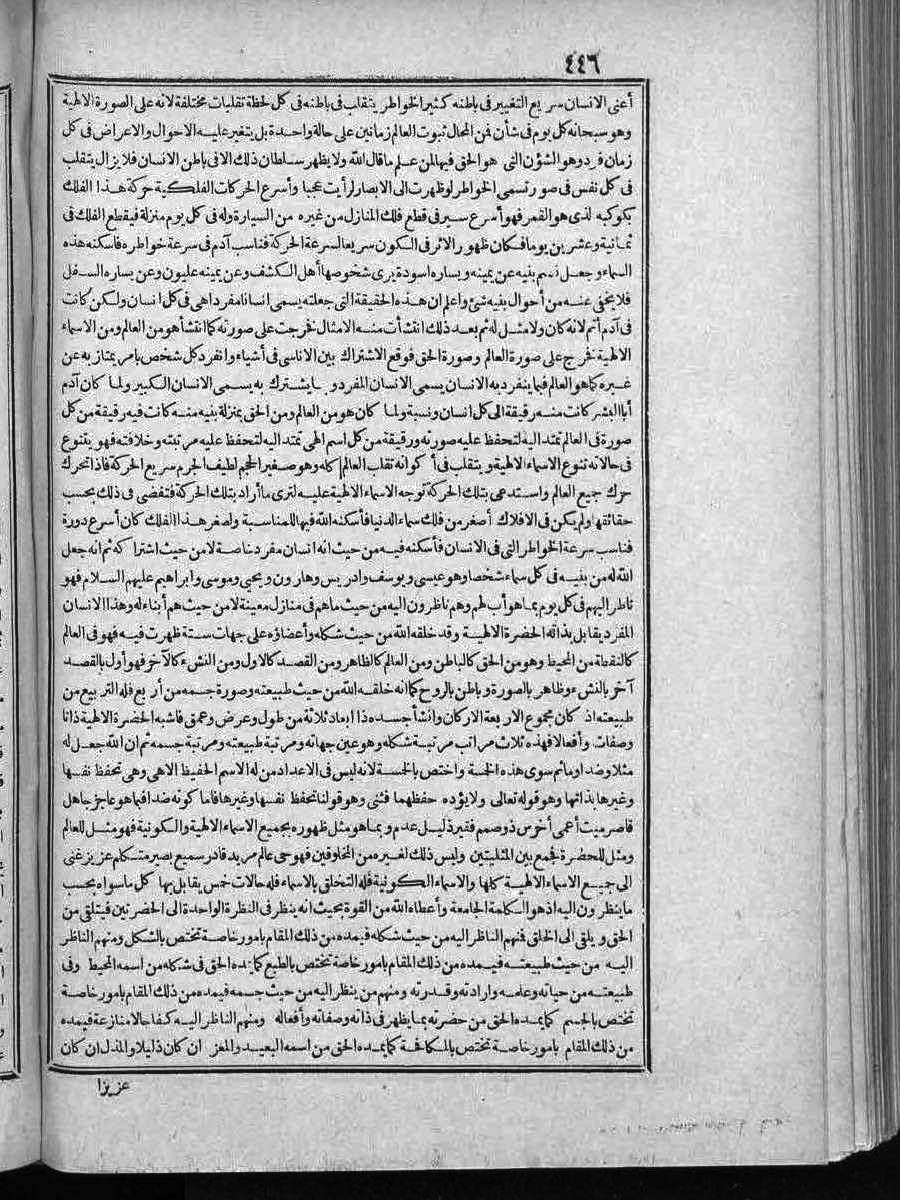 ٤٤٦
أعنى الانسان سريع التغيير فى باطنه كثير الخواطر يتقلب فى باطنه فى كل لحظة تقلبات مختلفة لانه على الصورة الالهية
وهو سبحانه كل يوم فى شأن فمن المحال ثبوت العالم زمانين على حالة واحدة بل يتغير عليه الاحوال والاعراض فى كل
زمان فرد وهو الشؤن التى هو الحق فيها لمن علم ما قال الله ولا يظهر سلطان ذلك الا فى باطن الانسان فلا يزال يتقلب
فى كل نفس فى صور تسمى الخواطر لو ظهرت الى الابصار لرأيت عجبا وأسرع الحركات الفلكية حركة هذا الفلك
بكوكبه لذى هو القمر فهو أسرع سير فى قطع فلك المنازل من غيره من السيارة وله فى كل يوم منزلة فيقطع الفلك فى
ثمانية وعشرين يوما فكان ظهور الاثر فى الكون سريعا لسرعة الحركة فناسب آدم فى سرعة خواطره فاسكنه هذه
السماء وجعل نسم بنيه عن يمينه ويساره اسودة يرى شخوصها أهل الكشف وعن يمينه عليون وعن يساره السفل
فلا يخفى عنه من أحوال بنيه شئ واعلم ان هذه الحقيقة التى جعلته يسمى انسانا مفردا هى فى كل انسان ولكن كانت
فى آدم أتم لانه كان ولا مثل له ثم بعد ذلك انتشأت منه الامثال فخرجت على صورته كما انتشأ هو من العالم ومن الاسماء
الالهية فخرج على صورة العالم وصورة الحق فوقع الاشتراك بين الاناسى فى أشياء وانفرد كل شخص بامر يمتاز به عن
غيره كما هو العالم فبما ينفرد به الانسان يسمى الانسان المفرد و بما يشترك به يسمى الانسان الكبير ولما كان آدم
أبا البشر كانت منه رقيقة الى كل انسان ونسبة ولما كان هو من العالم ومن الحق بمنزلة بنيه منه كانت فيه رقيقة من كل
صورة فى العالم تمتد اليه لتحفظ عليه صورته ورقيقة من كل اسم الهى تمتد اليه لتحفظ عليه مرتبته وخلافته فهو يتنوع
فى حالاته تنوع الاسماء الالهية ويتقلب فى أكوانه تقلب العالم كله وهو صغير الحجم لطيف الجرم سريع الحركة فاذا تحرك
حرك جميع العالم واستدعى بتلك الحركة توجه الاسماء الالهية عليه لترى ما أراد بتلك الحركة فتقضى فى ذلك بحسب
حقائقها ولم يكن فى الافلاك أصغر من فلك سماء الدنيا فأسكنه الله فيها للمناسبة ولصغر هذا الفلك كان أسرع دورة
فناسب سرعة الخواطر التى فى الانسان فأسكنه فيه من حيث انه انسان مفرد خاصة لا من حيث اشتراكه ثم انه جعل
الله له من بنيه فى كل سماء شخصا وهو عيسى ويوسف وادريس وهارون ويحيى وموسى وابراهيم عليهم السلام فهو
ناظر اليهم فى كل يوم بما هو أب لهم وهم ناظرون اليه من حيث ما هم فى منازل معينة لا من حيث هم أبناء له وهذا الانسان
المفرد يقابل بذاته الحضرة الالهية وقد خلقه الله من حيث شكله وأعضاؤه على جهات ستة ظهرت فيه فهو فى العالم
كالنقطة من المحيط وهو من الحق كالباطن ومن العالم كالظاهر ومن القصد كالاول ومن النشء كالآخر فهو أول بالقصد
آخر بالنشء وظاهر بالصورة وباطن بالروح كما انه خلقه الله من حيث طبيعته وصورة جسمه من أربع فله التربيع من
طبيعته اذ كان مجموع الاربعة الاركان وانشأ جسده ذا ابعاد ثلاثة من طول وعرض وعمق فاشبه الحضرة الالهية ذاتا
وصفات وأفعالا فهذه ثلاث مراتب مرتبة شكله وهو عين جهاته ومرتبة طبيعته ومرتبة جسمه ثم ان الله جعل له
مثلا وضدا وما ثم سوى هذه الخمسة واختص بالخمسة لانه ليس فى الاعداد من له الاسم الحفيظ الا هى وهى تحفظ نفسها
وغيرها بذاتها وهو قوله تعالى ولا يؤده حفظهما فثنى وهو قولنا تحفظ نفسها وغيرها فاما كونه ضدا فبما هو عاجز جاهل
قاصر ميت أعمى أخرس ذو صمم فقير ذليل عدم وبما هو مثل ظهوره بجميع الاسماء الالهية والكونية فهو مثل للعالم
ومثل للحضرة فجمع بين المثليتين وليس ذلك لغيره من المخلوقين فهو حى عالم مريد قادر سميع بصير متكلم عزيز غنى
الى جميع الاسماء الالهية كلها والاسماء الكونية فله التخلق بالاسماء فله حالات خمس يقابل بها كل ما سواه بحسب
ما ينظرون اليه اذ هو الكلمة الجامعة وأعطاه الله من القوة بحيث انه ينظر فى النظرة الواحدة الى الحضرتين فيتلقى من
الحق ويلقى الى الخلق فمنهم الناظر اليه من حيث شكله فيمده من ذلك المقام بامور خاصة تختص بالشكل ومنهم الناظر
اليه من حيث طبيعته فيمده من ذلك المقام بامور خاصة تختص بالطبع كما يمده الحق فى شكله من اسمه المحيط وفى
طبيعته من حياته وعلمه وارادته وقدرته ومنهم من ينظر اليه من حيث جسمه فيمده من ذلك المقام بامور خاصة
تختص بالجسم كما يمده الحق من حضرته بما يظهر فى ذاته وصفاته وأفعاله ومنهم الناظر اليه كفاحا لا منازعة فيمده
من ذلك المقام بامور خاصة تختص بالمكافحة كما يمده الحق من اسمه البعيد والمعز ان كان ذليلا والمذل ان كان
عزيزا